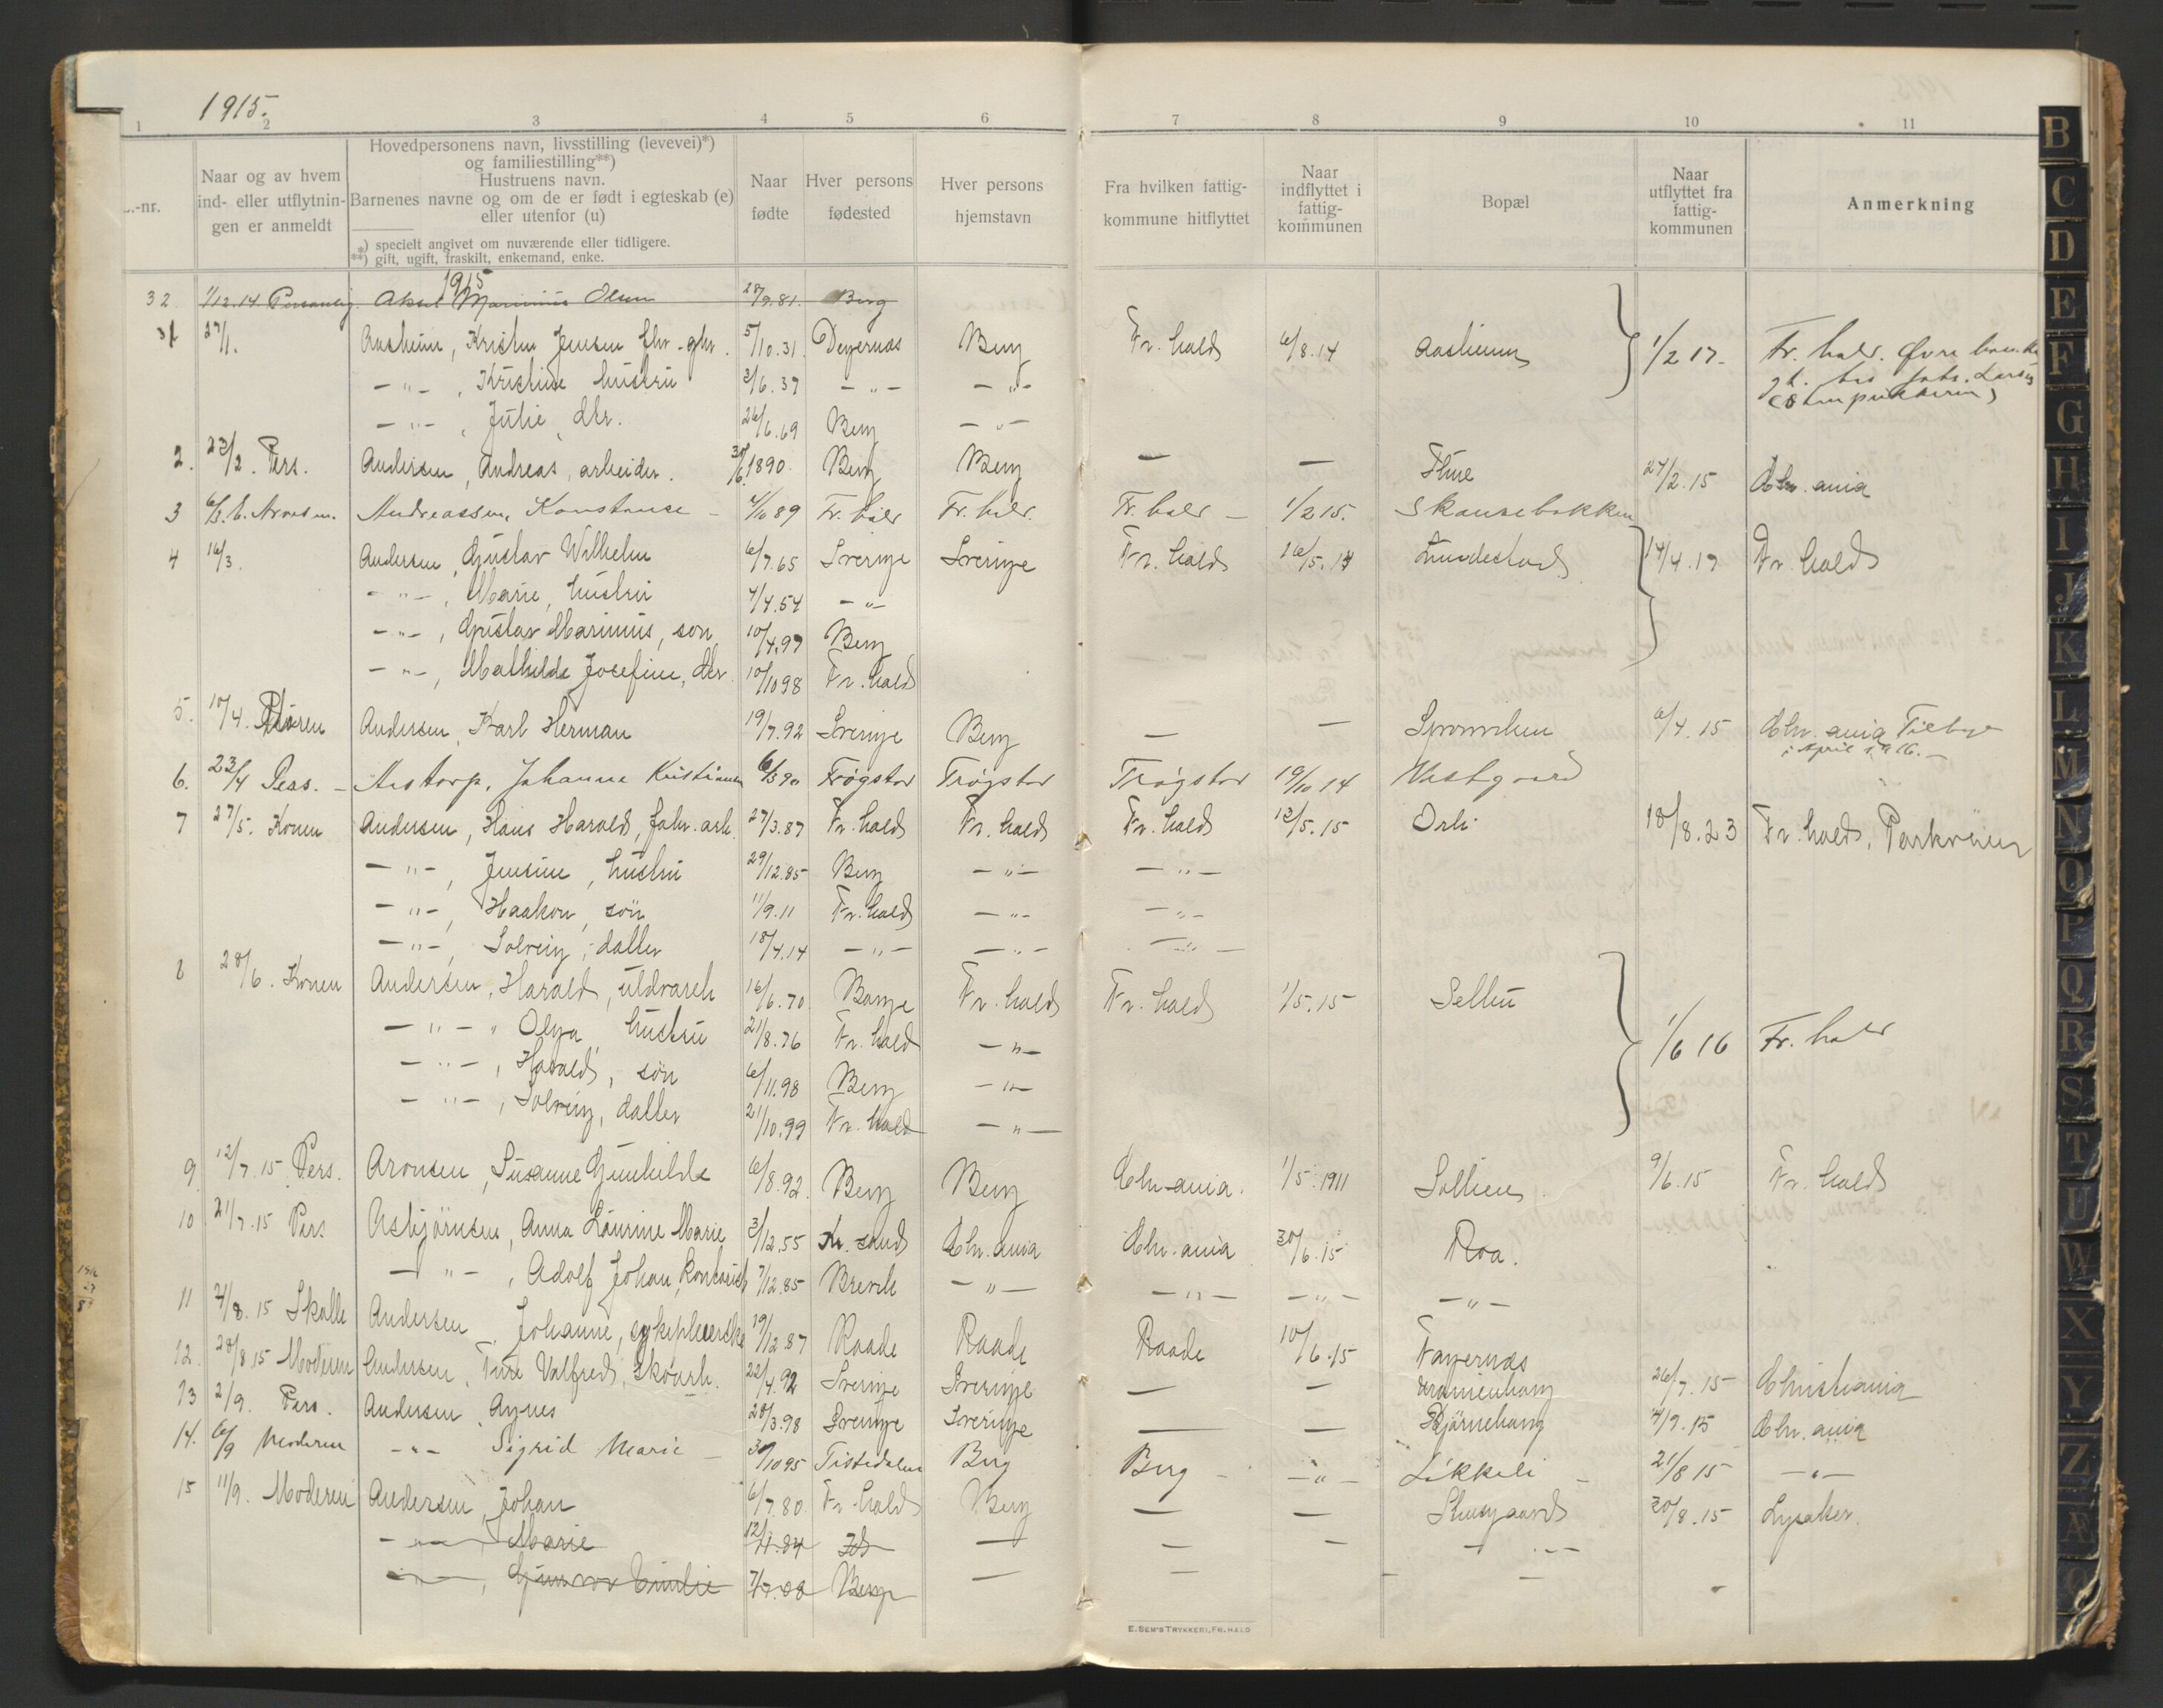 1915.
1 2 3 4 5 6 7 8 9 10 11
-nr.
Naar og av hvem ind- eller utflytnin-gen er anmeldt
Hovedpersonens navn, livsstilling (levevei)*)
og familiestilling**)
Hustruens navn.
Barnenes navne og om de er født i egteskab (e)
eller utenfor (u)
*) specielt angivet om nuværende eller tidligere.
**) gift, ugift, fraskilt, enkemand, enke.
Naar fødte
Hver persons fødested
Hver persons hjemstavn
Fra hvilken fattig-kommune hitflyttet
Naar indflyttet i fattig-kommunen
Bopæl
Naar utflyttet fra fattig-kommunen
Anmerkning
1915
32 1/12.14 Personlig. Aksel Marinius Olsen 28/9.81. Berg
27/1. Aasheim, Kristen Jensen 5/10.31. Degernæs Berg Fr. hald 6/8.14 Aasheim 1/2 17. Fr. hald. Øvre
- " - , Kristine hustru 3/6.37 - " - - " -
- " - , Julie, dtr. 26/6.69 Berg - " -
2. 23/2. Pers. Andersen, Andreas, arbeider. 30/6.1890. Berg Berg — — 27/2.15 Chr.ania
3 6/3. E. Andreassen, Konstanse - 4/10 89 Fr. hald Fr. hald. Fr. hald - 1/2 15. Skansebakken
4 16/3. Andersen, Gustav Wilhelm 6/7.65 Sverige Sverige Fr. hald 16/5.14 Lundestad 14/4.17 Fr. hald
- " - , Marie, hustru 4/4.54 - " -
- " - , Gustav Marinius, søn 10/4.97 Berg
- " - , Mathilde Josefine, dtr. 10/10 98 Fr. hald
5. 10/4. Andersen, Karl Herman 19/7.92 Sverige Berg — — 6/4.15 Chr.ania Tilbage
i April 1916. -
6. 23/4 Pers. - Aastorp, Johanne Kristiansen 6/3 90 Trøgstad Trøgstad Trøgstad 19/10 14 Vestgaard
7 27/5. Konen Andersen, Hans Harald, fabr. arb. 27/3.87 Fr. hald Fr. hald Fr. hald 12/5.15 Orli 18/8.23 Fr. hald, Parkveien
- " - , Jensine, hustru 29/12.85 Berg - " - - " -
- " - , Haakon, søn 11/9.11 Fr. hald - " - - " -
- " - , Solveig, datter 18/4.14 - " - - " - - " -
8 28/6. Konen Andersen, Harald, uldvareh 16/6.70 Fr. hald Fr. hald 1/5.15 1/6 16 Fr. hald
- " - " Olga, hustru 21/8.76 Fr. hald - " -
- " - , Harald, søn 6/11.98 Berg - " -
- " - , Solveig, datter 21/10.99 Fr. hald - " -
9 12/7.15 Pers. Aronsen, Susanne Gunhilde 6/8.92. Berg Berg Chr.ania. 1/5.1911 Sollien 9/6.15 Fr. hald
10 21/7.15 Pers Asbjørnsen, Anna Laurine Marie 3/12.55 Kr. sand Chr.ania Chr.ania 30/6.15 Roa.
- " - , Adolf Johan, kontorist 7/12.85 Brevik - " - - " - - " - - " -
11 7/8.15 Skalle Andersen, Johanne, sykepleierske 19/12.87 Raade Raade Raade 10/6.15 Fagernæs
12. 28/8.15 Moderen Andersen, Ture Valfred, skoarb. 22/4.92 Sverige Sverige — — 26/7.15 Christiania
13 2/9. Pers. Andersen, Agnes 28/3.98 Sverige Sverige — — Bjørnehaug 4/9.15 Chr.ania
14. 6/9 Moderen - " - Sigrid Marie - 30/10 95 Tistedalen Berg Berg - - " - Løkkeli - 21/8 15 - " -
15 11/9. Moderen Andersen, Johan 6/7.80. Fr. hald Berg — — Skusgaard 30/8.15 Lysaker.
- " - Marie 12/11.84 Id — — — - " -
- " - , Gunvor Emilie 7/7.08 Berg — — — —
E. SEM'S TRYKKERI, FR.HALD
B
C
D
E
F
G
H
I
J
K
L
M
N
O
P
Q
R
S
T
U
W
X
Y
Z
Æ
Ø